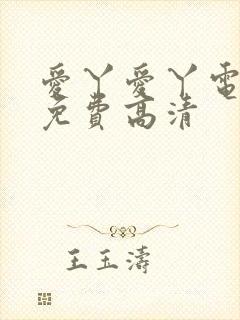 愛丫愛丫電
免費高清
王玉濤